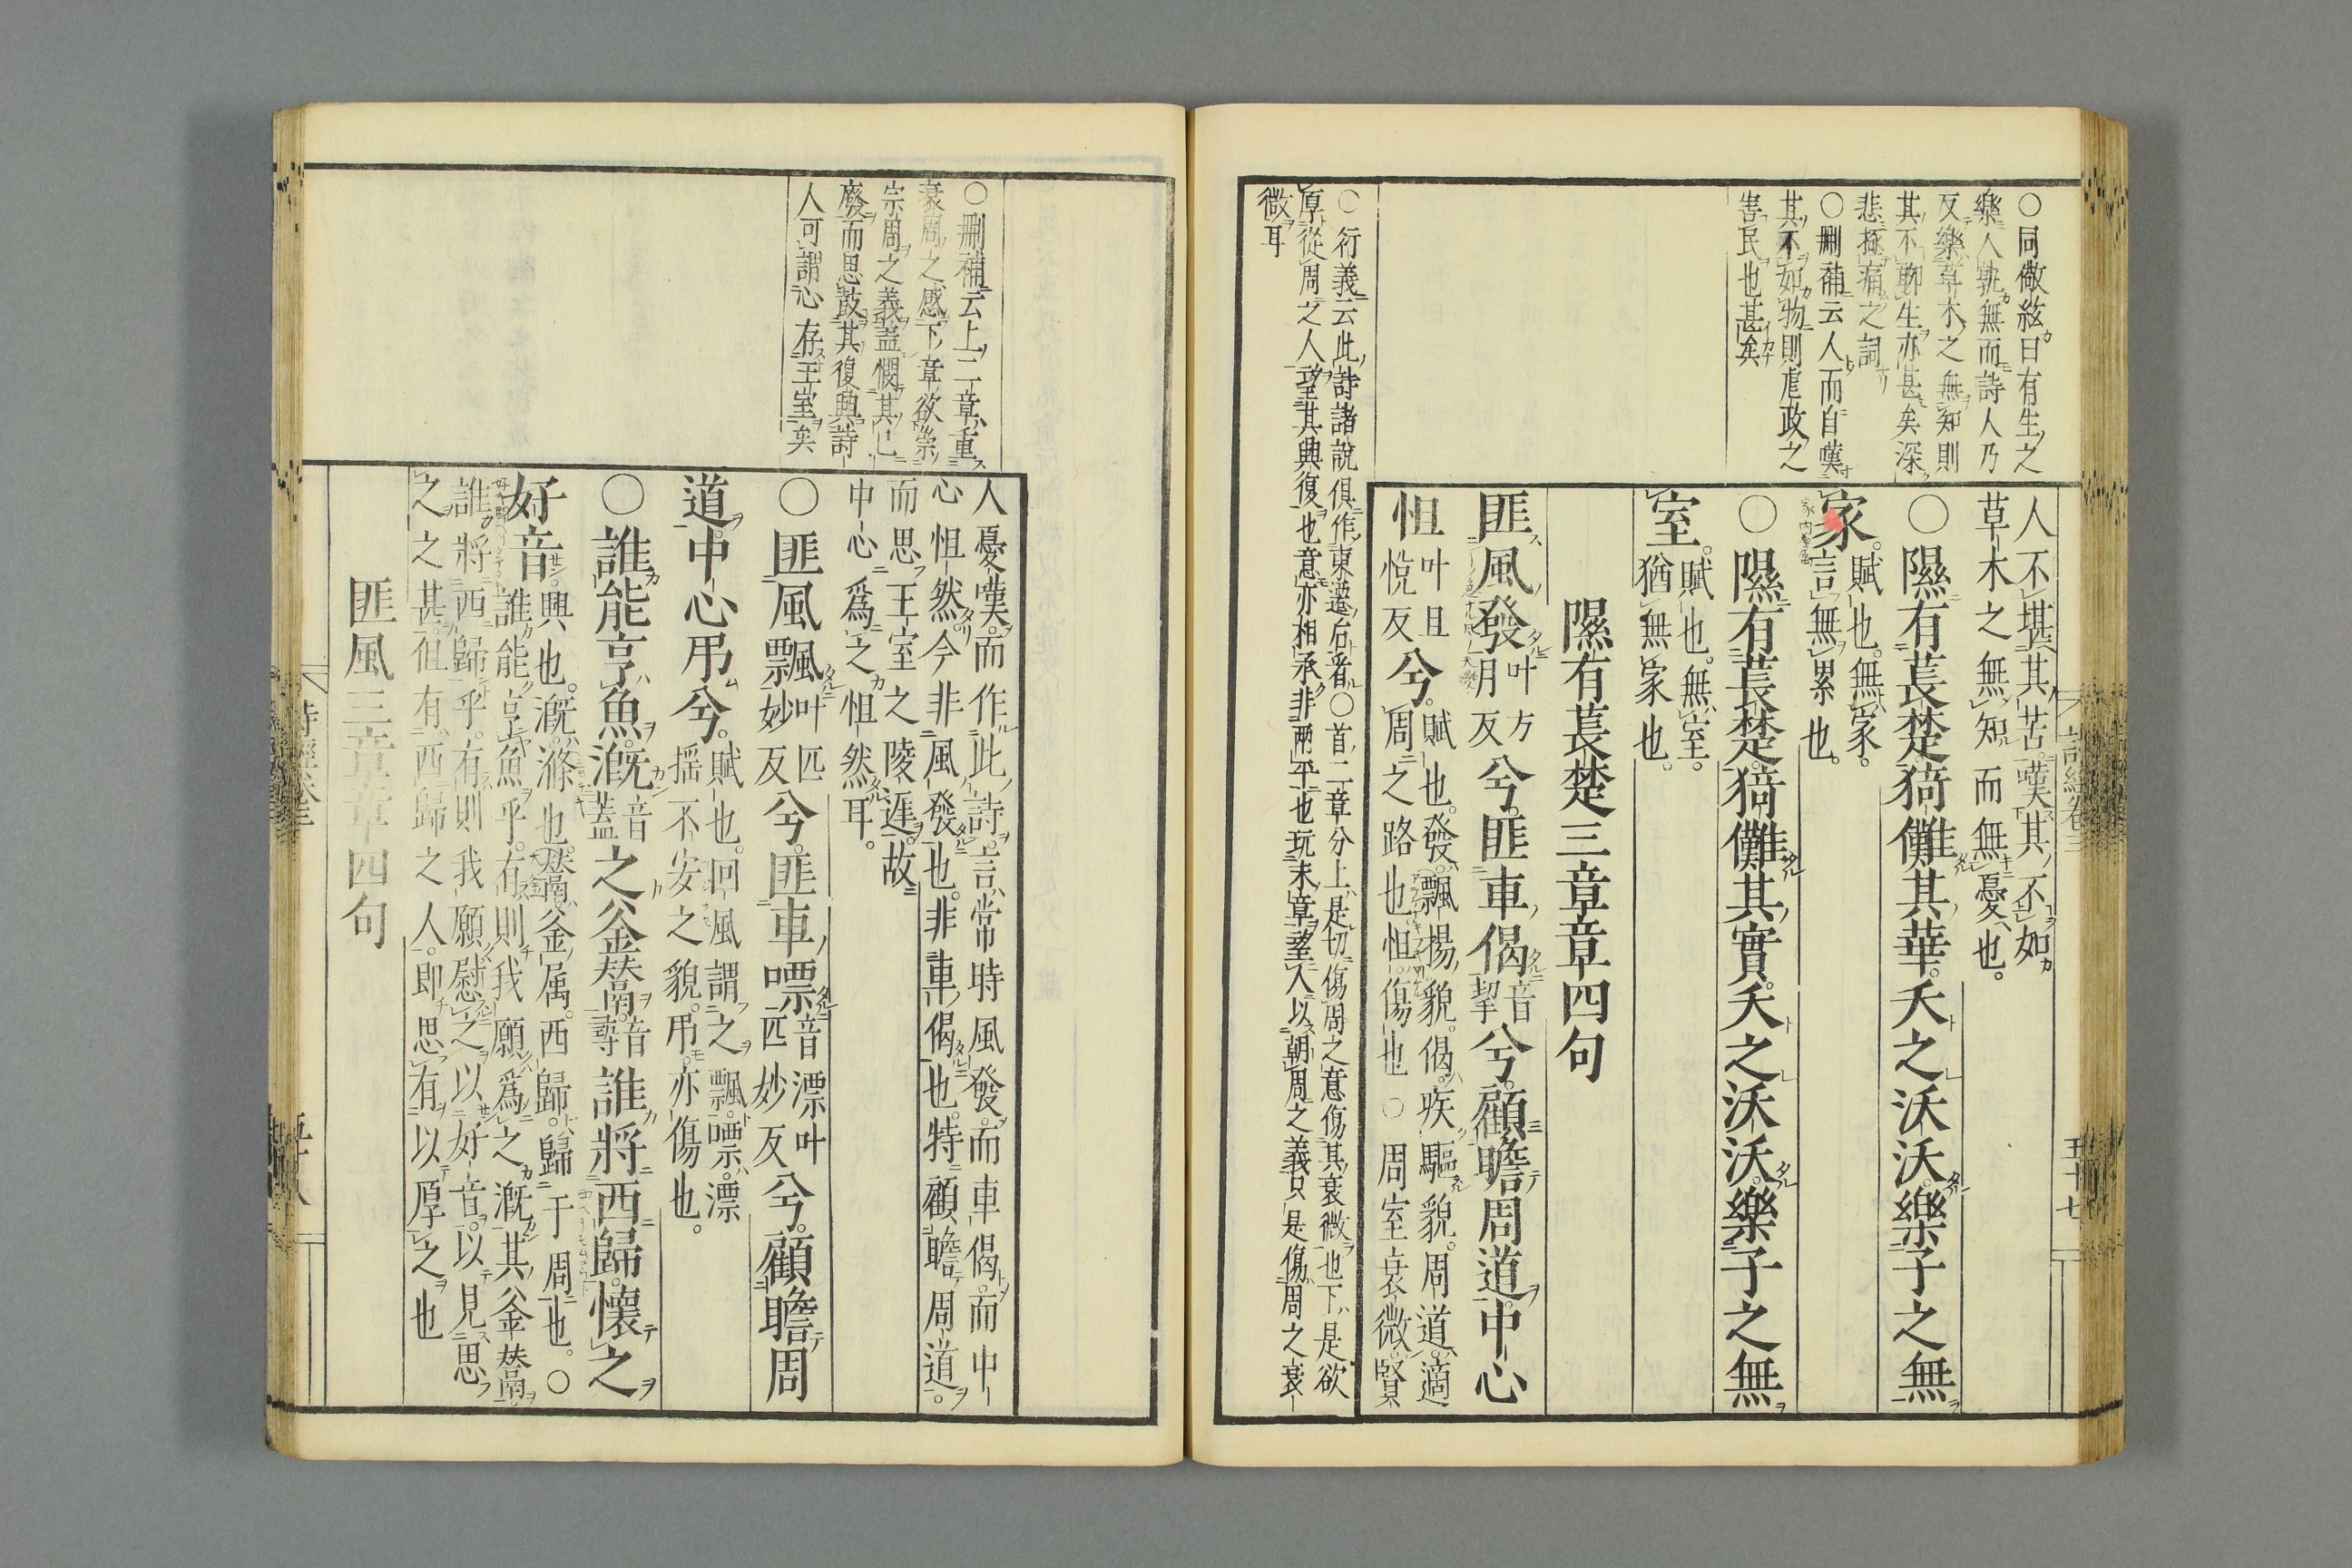 ○同儆絃曰有生之
樂人孰無而詩人乃
反樂草木之無知則
其不聊生亦甚矣深
悲極痛之詞
○刪補云人而自嘆
其不如物則虐政之
害民也甚矣
人不堪其苦。嘆其不如
草木之無知而無憂也。
○隰有萇楚。猗儺其華。夭之沃沃。樂子之無
家。賦也。無家。
言無累也。
○隰有萇楚。猗儺其實。夭之沃沃。樂子之無
室。賦也。無室。
猶無家也。
隰有萇楚三章章四句
匪風發叶方
月反兮。匪車偈音
挈兮。顧瞻周道。中心
怛叶旦
悅反兮。賦也。發。飄揚貌。偈。疾驅貌。周道。適
周之路也。怛。傷也○周室衰微。賢
○行義云此詩諸說俱作東遷后者○首二章分上是切傷周之意傷其衰微也下是欲
厚從周之人望其興復也意亦相承非兩平也玩末章望人以朝周之義只是傷周之衰
微耳
詩經卷三
五十七
○刪補云上二章重
衰周之感下章欲崇
宗周之義蓋憫其已
廢而思鼓其復興詩
人可謂心存王室矣
人憂嘆。而作此詩。言常時風發。而車偈。而中
心怛然。今非風發也。非車偈也。特顧瞻周道。
而思王室之陵遲。故
中心爲之怛然耳。
○匪風飄叶匹
妙反兮。匪車嘌音漂叶
匹妙反兮。顧瞻周
道。中心弔兮。賦也。回風謂之飄。嘌。漂
搖不安之貌。弔。亦傷也。
○誰能亨魚。溉音
蓋之釜鬵。音
尋誰將西歸。懷之
好音。興也。溉。滌也。鬵。釜屬。西歸。歸于周也。○
誰能亨魚乎。有則我願爲之溉其釜鬵。
誰將西歸乎。有則我願慰之以好音。以見思
之之甚。但有西歸之人。即思有以厚之也
匪風三章章四句